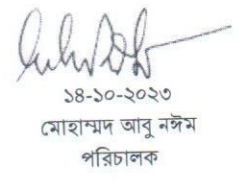 ১৪-১০-২০২৩
মোহাম্মদ আবু নঈম
পরিচালক